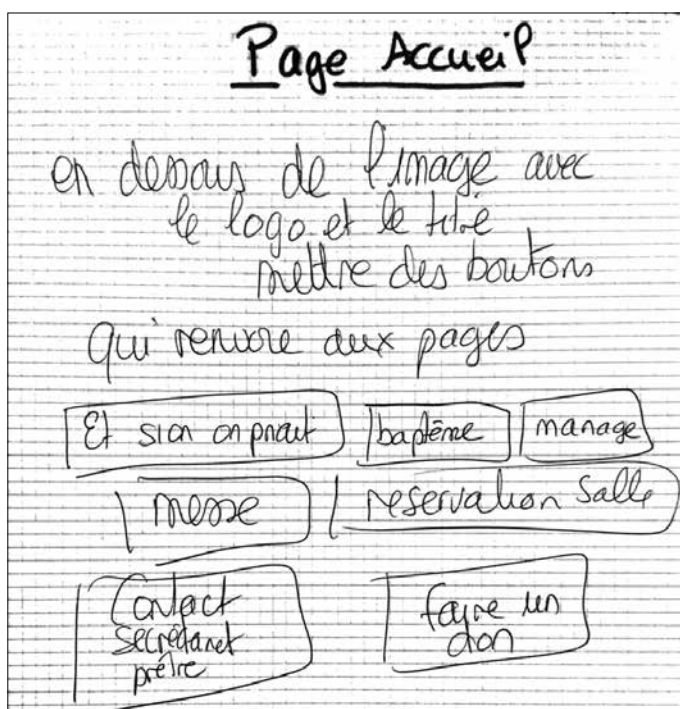 Page Accueil
en dessous de l'image avec
le logo et le titre
mettre des boutons
qui renvoie aux pages
Et si on on priait
baptême
mariage
messe
reservation salle
Contact
secrétariat
prêtre
faire un
don